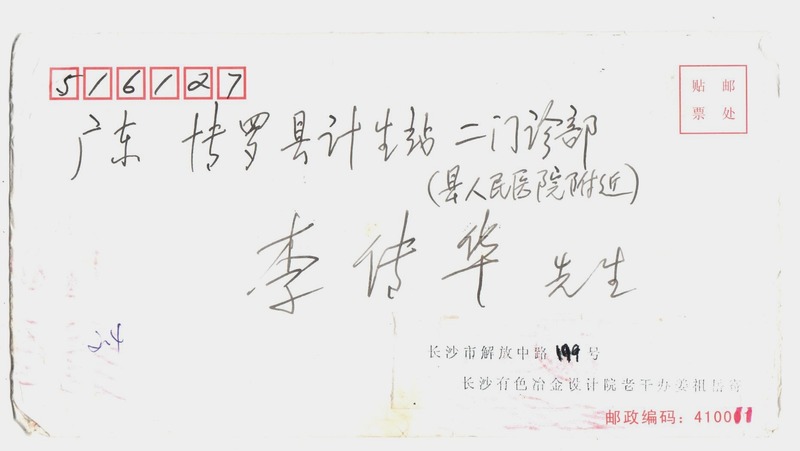 516127
贴 邮
票 处
广东 博罗县计生站二门诊部
(县人民医院附近)
李传华 先生
长沙市解放中路199号
长沙有色冶金设计院老干办姜祖岳寄
邮政编码:410011